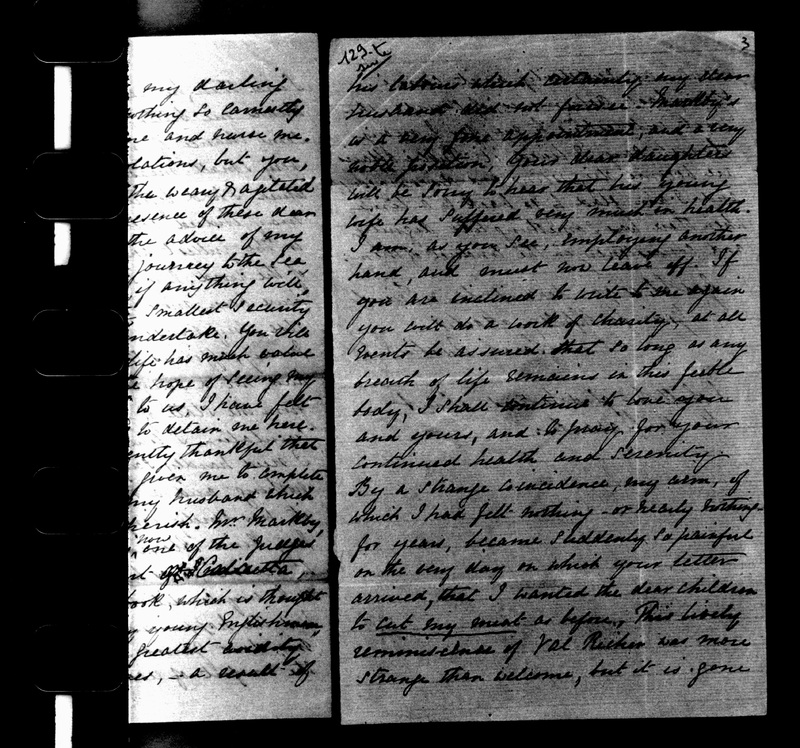 my darling
nothing so earnestly
me and nurse me.
olations, but you,
the weary & agitated
esence of these dear
the advice of my
journey to the sea
if anything will,
smallest security
undertake. You will
life has much value
e hope of seeing my
to us, I have felt
to detain me here.
ently thankful that
given me to complete
my husband which
herish. Mr. Markby,
now
one of the Judges
rt of Calcutta,
book, which is thought
y young Englishmen,
greatest avidity
es, - a result of
129-te
3
his labours which certainly my dear
husband did not foresee. Markby's
is a very fine appointment, and a very
noble position. Your dear daughters
will be sorry to hear that his young
wife has suffered very much in health.
I am, as you see, employing another
hand, and must now leave off. If
you are inclined to write to me again
you will do a work of charity; at all
events be assured that so long as any
breath of life remains in this feeble
body, I shall continue to love you
and yours, and to pray for your
continued health and serenity.
By a strange coincidence, my arm, of
which I had felt nothing - or nearly nothing
for years, became suddenly so painful
on the very day on which your letter
arrived, that I wanted the dear children
to cut my meat as before. This lively
reminiscence of Val Richer was more
strange than welcome, but it is gone